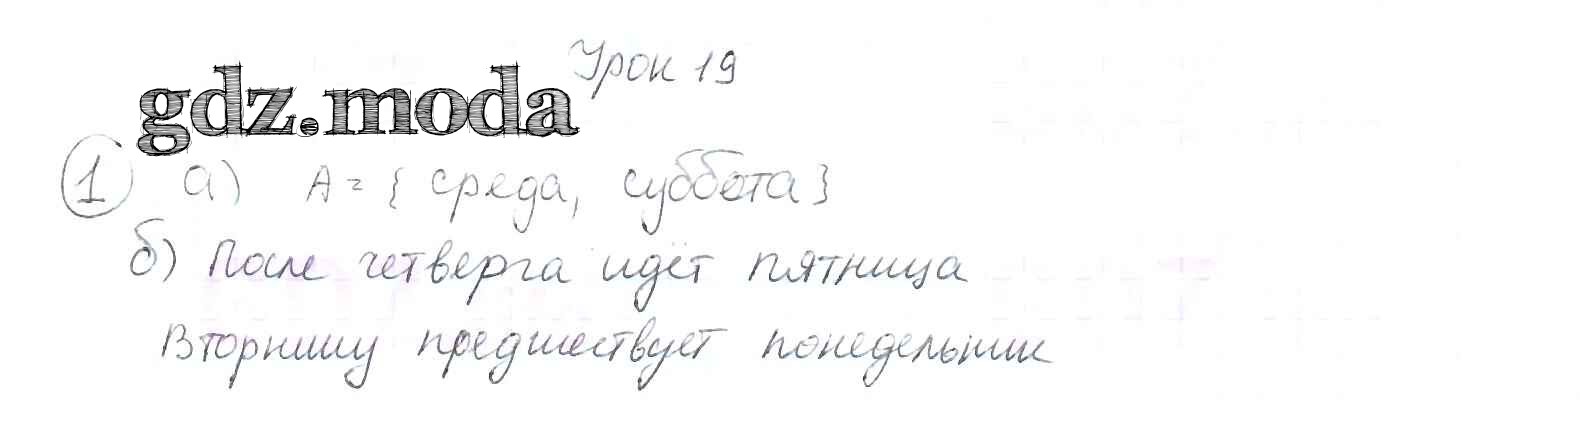 Урок 19
gdz.moda
1 а) A = { среда, суббота}
б) После четверга идёт пятница
Вторнику предшествует понедельник